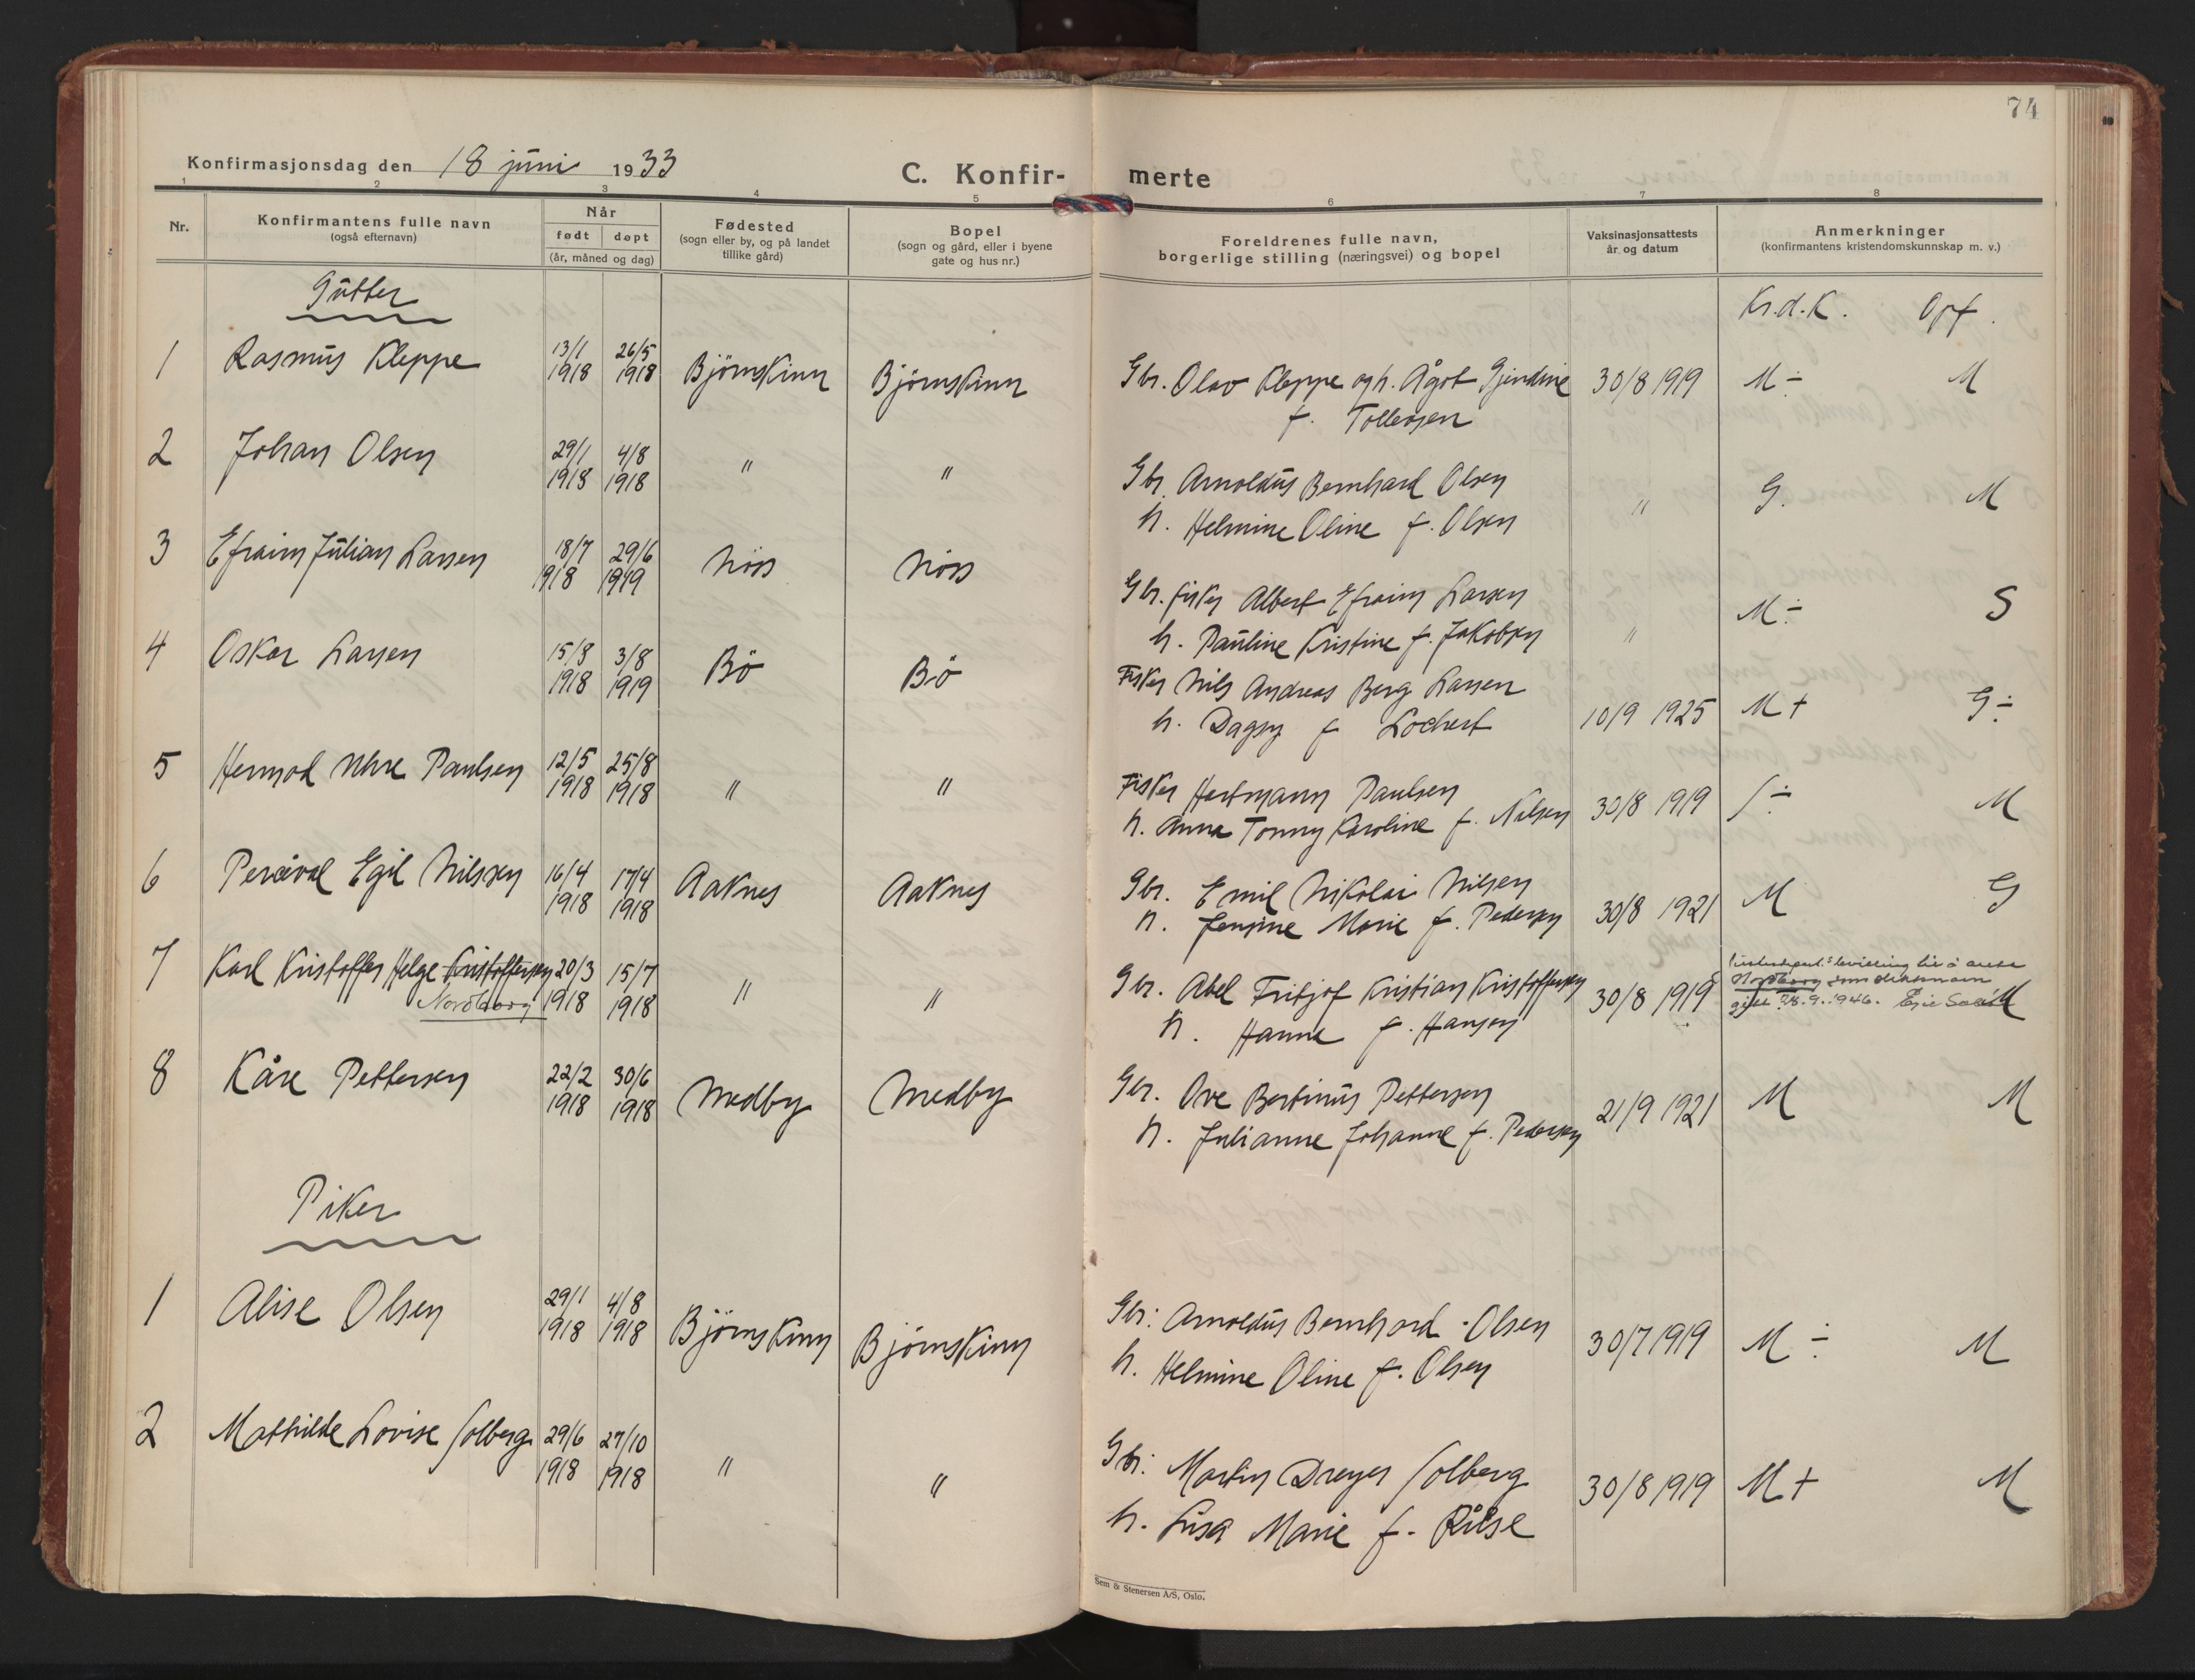 74
Konfirmasjonsdag den 18 juni 1933
C. Konfir- merte
1 2 3 4 5 6 7 8
Nr.
Konfirmantens fulle navn
(også efternavn)
Når
født døpt
(år, måned og dag)
Fødested
(sogn eller by, og på landet
tillike gård)
Bopel
(sogn og gård, eller i byene
gate og hus nr.)
Foreldrenes fulle navn,
borgerlige stilling (næringsvei) og bopel
Vaksinasjonsattests
år og datum
Anmerkninger
(konfirmantens kristendomskunnskap m. v.)
Gutter
Kr.d.K. Opf.
1 Rasmus Kleppe 13/1 1918 26/5 1918 Björnskinn Björnskinn Gbr. Olav Kleppe og h. Ågot Gjendine 30/8 1919 M÷ M
f. Tollersen
2 Johan Olsen 29/1 1918 4/8 1918 " " Gbr. Arnoldus Bernhard Olsen " G. M
h. Helmine Oline f. Olsen
3 Efraim Julian Larsen 18/7 1918 29/6 1919 Nöss Nöss Gbr. fisker Albert Efraim Larsen " M÷ S
h. Pauline Kristine f. Jakobsen
4 Oskar Larsen 15/8 1918 3/8 1919 Bö Bö Fisker Nils Andreas Berg Larsen 10/9 1925 M+ G÷
h. Dagny f Lochert
5 Hermod Uhre Paulsen 12/5 1918 25/8 1918 " " Fisker Hartmann Paulsen 30/8 1919 S÷ M
h. Anna Tonny Karoline f. Nilsen
6 Perceval Egil Nilssen 16/4 1918 17/4 1918 Aaknes Aaknes Gbr. Emil Nikolai Nilsen 30/8 1921 M G
h. Jensine Marie f. Pedersen
7 Karl Kristoffer Helge Kristoffersen 20/3 1918 15/7 1918 " " Gbr. Abel Fritjof Kristian Kristoffersen 30/8 1919 M
Nordborg
h. Hanna f. Hansen
Justisdepart.s bevilling til å anta
Nordborg som slektsnavn
gitt 28.9.1946.
8 Kåre Pettersen 22/2 1918 30/6 1918 Medby Medby Gbr. Ove Bertinus Pettersen 21/9 1921 M M
h. Julianne Johanne f. Pedersen
Piker
1 Alise Olsen 29/1 1918 4/8 1918 Björnskinn Björnskinn Gbr: Arnoldus Bernhard Olsen 30/7 1919 M÷ M
h. Helmine Oline f. Olsen
2 Mathilde Lovise Solberg 29/6 1918 27/10 1918 " " Gbr: Martin Dreyer Solberg 30/8 1919 M+ M
h. Lisa Marie f. Riise
Sem & Stenersen A/S, Oslo.